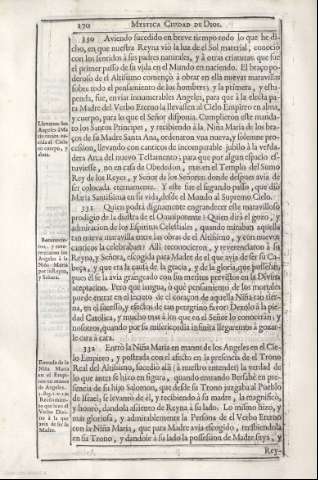 270
MYSTICA CIUDAD DE DIOS.
330 Aviendo sucedido en breve tiempo todo lo que he di-
cho, en que nuestra Reyna viò la luz de el Sol material, conociò
con los sentidos à sus padres naturales, y à otras criaturas: que fue
el primer passo de su vida en el Mundo en naciendo. El braço po-
deroso de el Altissimo començò à obrar en ella nuevas maravillas
sobre todo el pensamiento de los hombres: y la primera, y estu-
penda, fue, enviar innumerables Angeles, para que à la electa pa-
ra Madre del Verbo Eterno la llevassen al Cielo Empireo en alma,
y cuerpo, para lo que el Señor disponia. Cumplieron este manda-
to los Santos Principes, y recibiendo à la Niña Maria de los bra-
ços de su Madre Santa Ana, ordenaron vna nueva, y solemne pro-
cession, llevando con canticos de incomparable jubilo à la verda-
dera Arca del nuevo Testamento; para que por algun espacio es-
tuviesse, no en casa de Obededon, mas en el Templo del Sumo
Rey de los Reyes, y Señor de los Señores, donde despues avia de
ser colocada eternamente. Y este fue el segundo passo, que diò
Maria Santissima en su vida, desde el Mundo al Supremo Cielo.
Llevaron los
Angeles à Ma-
ria recien na-
cida al Cielo
en cuerpo, y
alma.
331 Quien podrà dignamente engrandecer este maravilloso
prodigio de la diestra de el Omnipotente? Quien dirà el gozo, y
admiracion de los Espiritus Celestiales, quando miraban aquella
tan nueva maravilla entre las obras de el Altissimo, y con nuevos
canticos la celebraban? Alli reconocieron, y reverenciaron à su
Reyna, y Señora, escogida para Madre de el que avia de ser su Ca-
beça, y que era la causa de la gracia, y de la gloria, que posseìan,
pues èl se la avia grangeado con sus meritos previstos en la Divina
aceptacion. Pero què lengua, ò què pensamiento de los mortales
puede entrar en el secreto de el coraçon de aquella Niña tan tier-
na, en el sucesso, y efectos de tan peregrino favor? Dexolo à la pie-
dad Catolica, y mucho mas à los que en el Señor lo conoceràn; y
nosotros, quando por su misericordia infinita llegaremos à gozar-
le cara à cara.
Angeles à la
Niña Maria
por su Reyna,
y Señora.
332 Entrò la Niña Maria en manos de los Angeles en el Cie-
lo Empireo, y postrada con el afecto en la presencia de el Trono
Real del Altissimo, sucediò allì (à nuestro entender) la verdad de
lo que antes se hizo en figura, quando entrando Bersabè en pre-
sencia de su hijo Salomon, que desde su Trono juzgaba al Pueblo
de Israel, se levantò de èl, y recibiendo à su madre, la magnificò,
y honrò, dandola assiento de Reyna à su lado. Lo mismo hizo, y
mas gloriosa, y admirablemente la Persona de el Verbo Eterno
con la Niña Maria, que para Madre avia escogido, recibiendola
en su Trono, y dandole à su lado la possession de Madre suya, y
Entrada de la
Niña Maria
en el Empi-
reo en manos
de Angeles.
Recibimien-
to que hizo el
Verbo Divi-
no à la que
avia de ser su
Madre.
Rey-